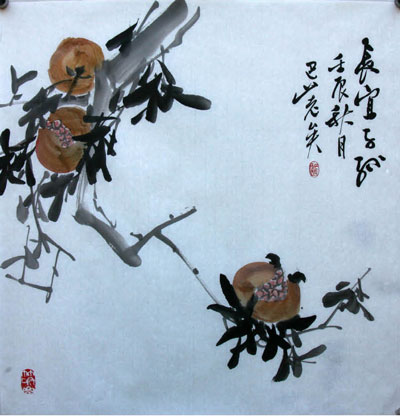 長宜子孫
壬辰秋月
巴山老